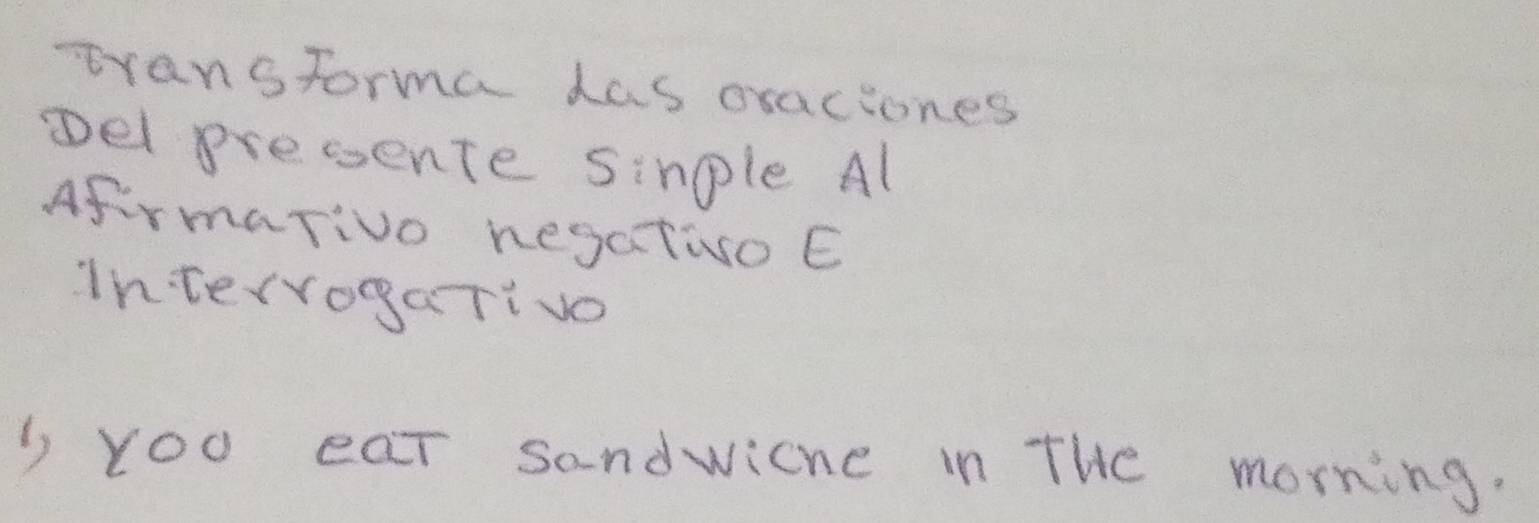 Transforma Las oraciones
Del presente sinple Al
Afirmativo negativo E
Interrogativo
1) YOU eat sandwiche in The morning.